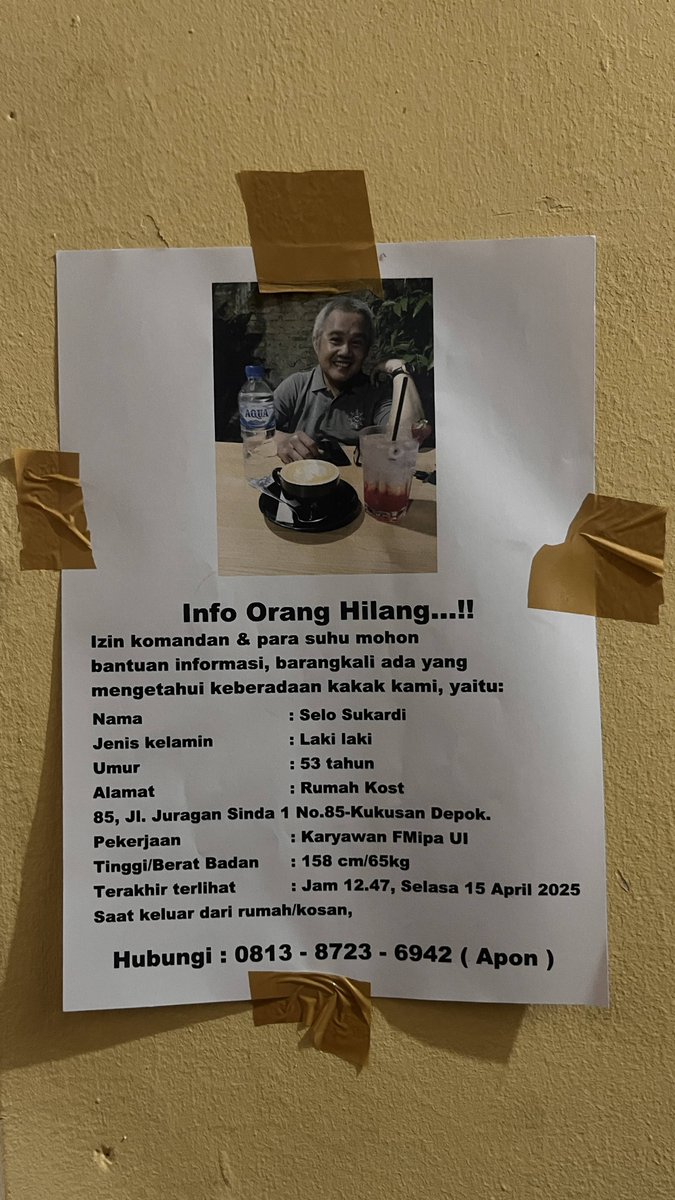 AQUA
Info Orang Hilang...!!
Izin komandan & para suhu mohon
bantuan informasi, barangkali ada yang
mengetahui keberadaan kakak kami, yaitu:
Nama : Selo Sukardi
Jenis kelamin : Laki laki
Umur : 53 tahun
Alamat : Rumah Kost
85, Jl. Juragan Sinda 1 No.85-Kukusan Depok.
Pekerjaan : Karyawan FMipa UI
Tinggi/Berat Badan : 158 cm/65kg
Terakhir terlihat : Jam 12.47, Selasa 15 April 2025
Saat keluar dari rumah/kosan,
Hubungi : 0813 - 8723 - 6942 ( Apon )